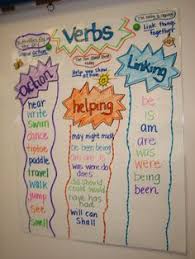 Verbs
Link things
together
Action
Linking
helping
hear
write
swim
dance
tiptoe
paddle
travel
walk
jump
see
smell
may might must
be been being
am are is
was were
does do did
should could
would
have has had
will can
shall
be
is
am
are
was
were
being
been